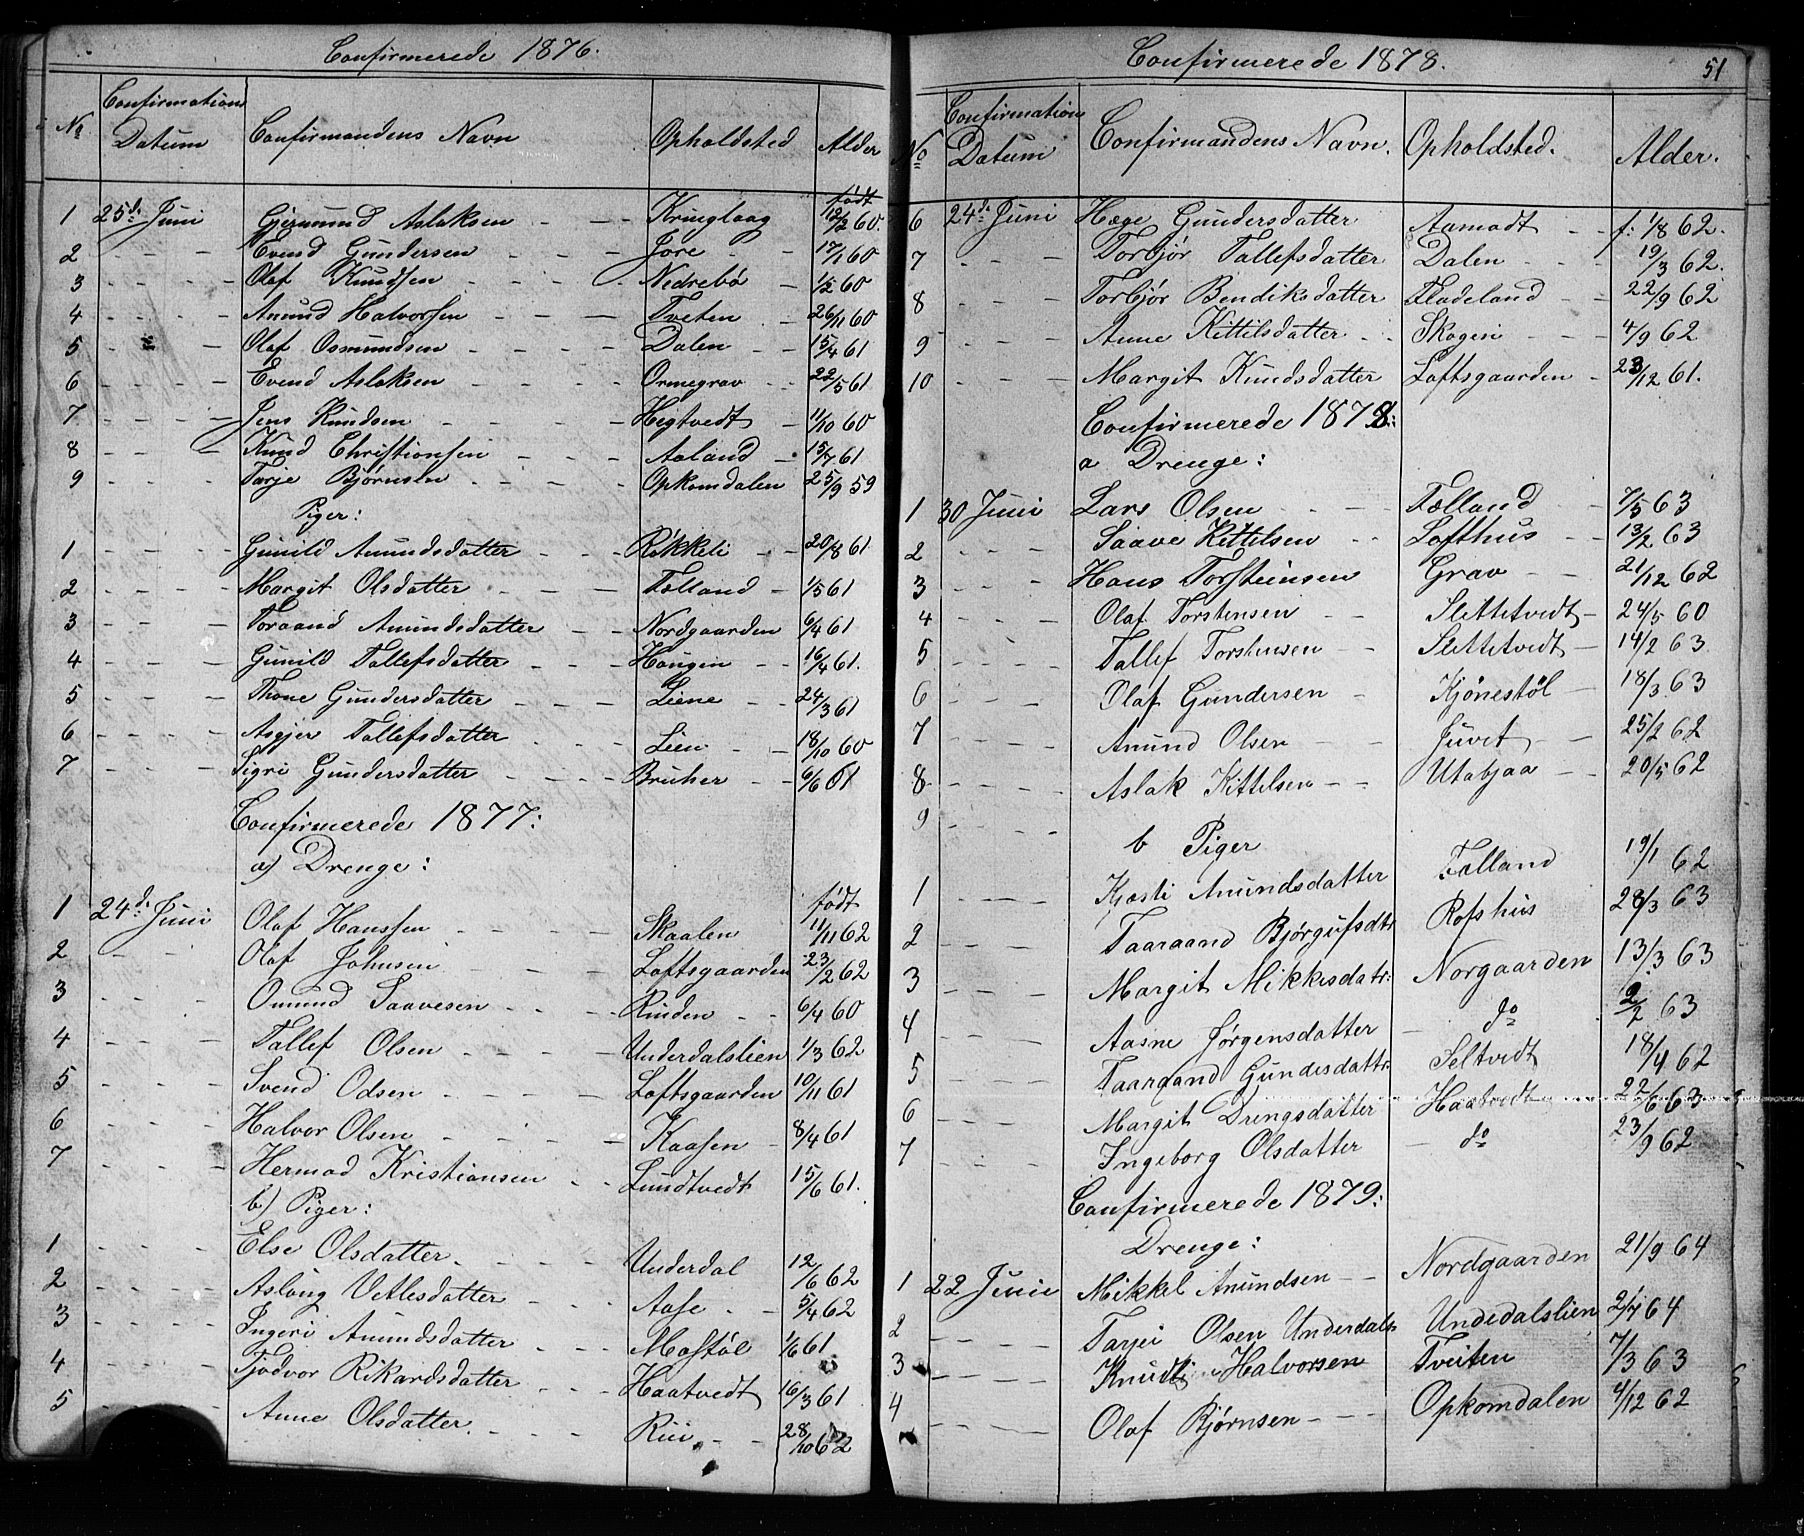 Confirmerede 1876.
No Confirmations Datum Confirmandens Navn Opholdsted Alder
født
1 25d. Juni Gjermund Aslaksen - - Kringlaag 12/2 60.
2 - - - Evend Gundersen - - Jore - - 17/1 60
3 - - - Olaf Knudsen - - - - Nedrebø - 1/5 60
4 - - - Anund Halvorsen - - - Tveten - - 26/11 60
5 - - - Olaf Osmundsen - - - - Dalen - - 15/4 61
6 - - - Evend Aslaksen - - - - Ormegrav - - 22/5 61
7 - - - Jens Knudsen - - - - Hegtvedt - 11/10 60
8 - - - Knud Christiansen - - - Aaland - 15/7 61
9 - - - Tarje Bjørnsen - - - - Opkomdalen 25/9 59
Piger:
1 - - - Gunild Anundsdatter - - - Rikkeli - - 20/8 61
2 - - - Margit Olsdatter - - - Tælland - 1/5 61
3 - - - Toraand Anundsdatter - - Nordgaarden 6/4 61
4 - - - Gunild Tallefsdatter - - - Haugen - - 16/4 61.
5 - - - Thone Gundersdatter - - - Liene - - 24/3 61
6 - - - Asgjer Tallefsdatter - - - Lien - - 18/10 60
7 - - - Sigri Gundersdatter - - - - Bruher - - 6/6 61
Confirmerede 1877:
a) Drenge:
født
1 24d. Juni Olaf Hanssen - - - - Skaalen 11/11 62
2 - - Olaf Johnsen - - - - Loftsgaarden 23/2 62
3 - - - Omund Saavesen - - - - Rinden - - 6/4 60
4 - - - Tallef Olsen - - - - Underdalslien 1/3 62
5 - - - Svend Odsen - - - - Loftsgaarden 10/11 61
6 - - - Halvor Olsen - - - - Kaasen - 8/4 61
7 - - - Hermod Kristiansen - - Lundtvedt 15/6 61.
b) Piger:
1 - - - Else Olsdatter - - - - Underdal 12/6 62
2 - - - Aslaug Vetlesdatter - - - Aase - - 5/4 62
3 - - - Ingeri Anundsdatter - - - Mostøl 1/6 61
4 - - - Tjodvor Rikardsdatter - - - Haatvedt 16/3 61
5 - - - Anne Olsdatter. - - - Rui - - 28/10 62
Confirmerede 1878. 51
No Confirmation Datum Confirmandens Navn. Opholdsted. Alder.
6 24d. Juni Hæge Gundersdatter Aamodt - - f: 1/8 62.
7 - - - Torbjør Tallefsdatter Dalen - - - 19/3 62.
8 - - - Torbjør Bendiksdatter Fladeland - - 22/9 62
9 - - - Anne Kittilsdatter - - Skogen - - - 4/9 62
10 - - - Margit Knudsdatter Loftsgaarden - 23/12 61.
Confirmerede 1878:
a Drenge:
1 30 Juni Lars Olsen - - - Tælland - 7/5 63
2 - - - Saave Kittilsen - - Lofthus - - 13/2 63
3 - - - Hans Torsteinsen Grav - - 21/12 62
4 - - - Olaf Torstensen - - Slittetvedt - 24/5 60
5 - - - Tallef Torstensen - - Slittetvedt - 14/2 63
6 - - - Olaf Gundersen - Kjønestøl - 18/3 63
7 - - - Anund Olsen - - Juvet - - 25/2 62
8 - - - Aslak Kittilsen - - Utabjaa - - 20/5 62
9 - - -
b Piger
1 - - - Kjøsti Anundsdatter Tælland 19/1 62
2 - - - Taaraand Bjørgufsdtr Rofshus 28/3 63
3 - - - Margit Mikkisdatr: Norgaarden 13/3 63
4 - - - Aasne Jørgensdatter - do 2/2 63
5 - - - Taaraand Gundesdattr: Seltvedt 18/4 62
6 - - - Margit Drengsdatter Haatvedt 22/6 63
7 - - - Ingeborg Olsdatter - do 23/9 62
Confirmerede 1879:
Drenge:
1 22 Juni Mikkel Anundsen - - Nordgaarden 21/9 64
2 - - Tarjei Olsen Underdals Undedalslien 2/7 64
3 - - - Knud Halvorsen Tveiten 7/3 63
4 - - - Olaf Bjørnsen - - - Opkomdalen 4/12 62